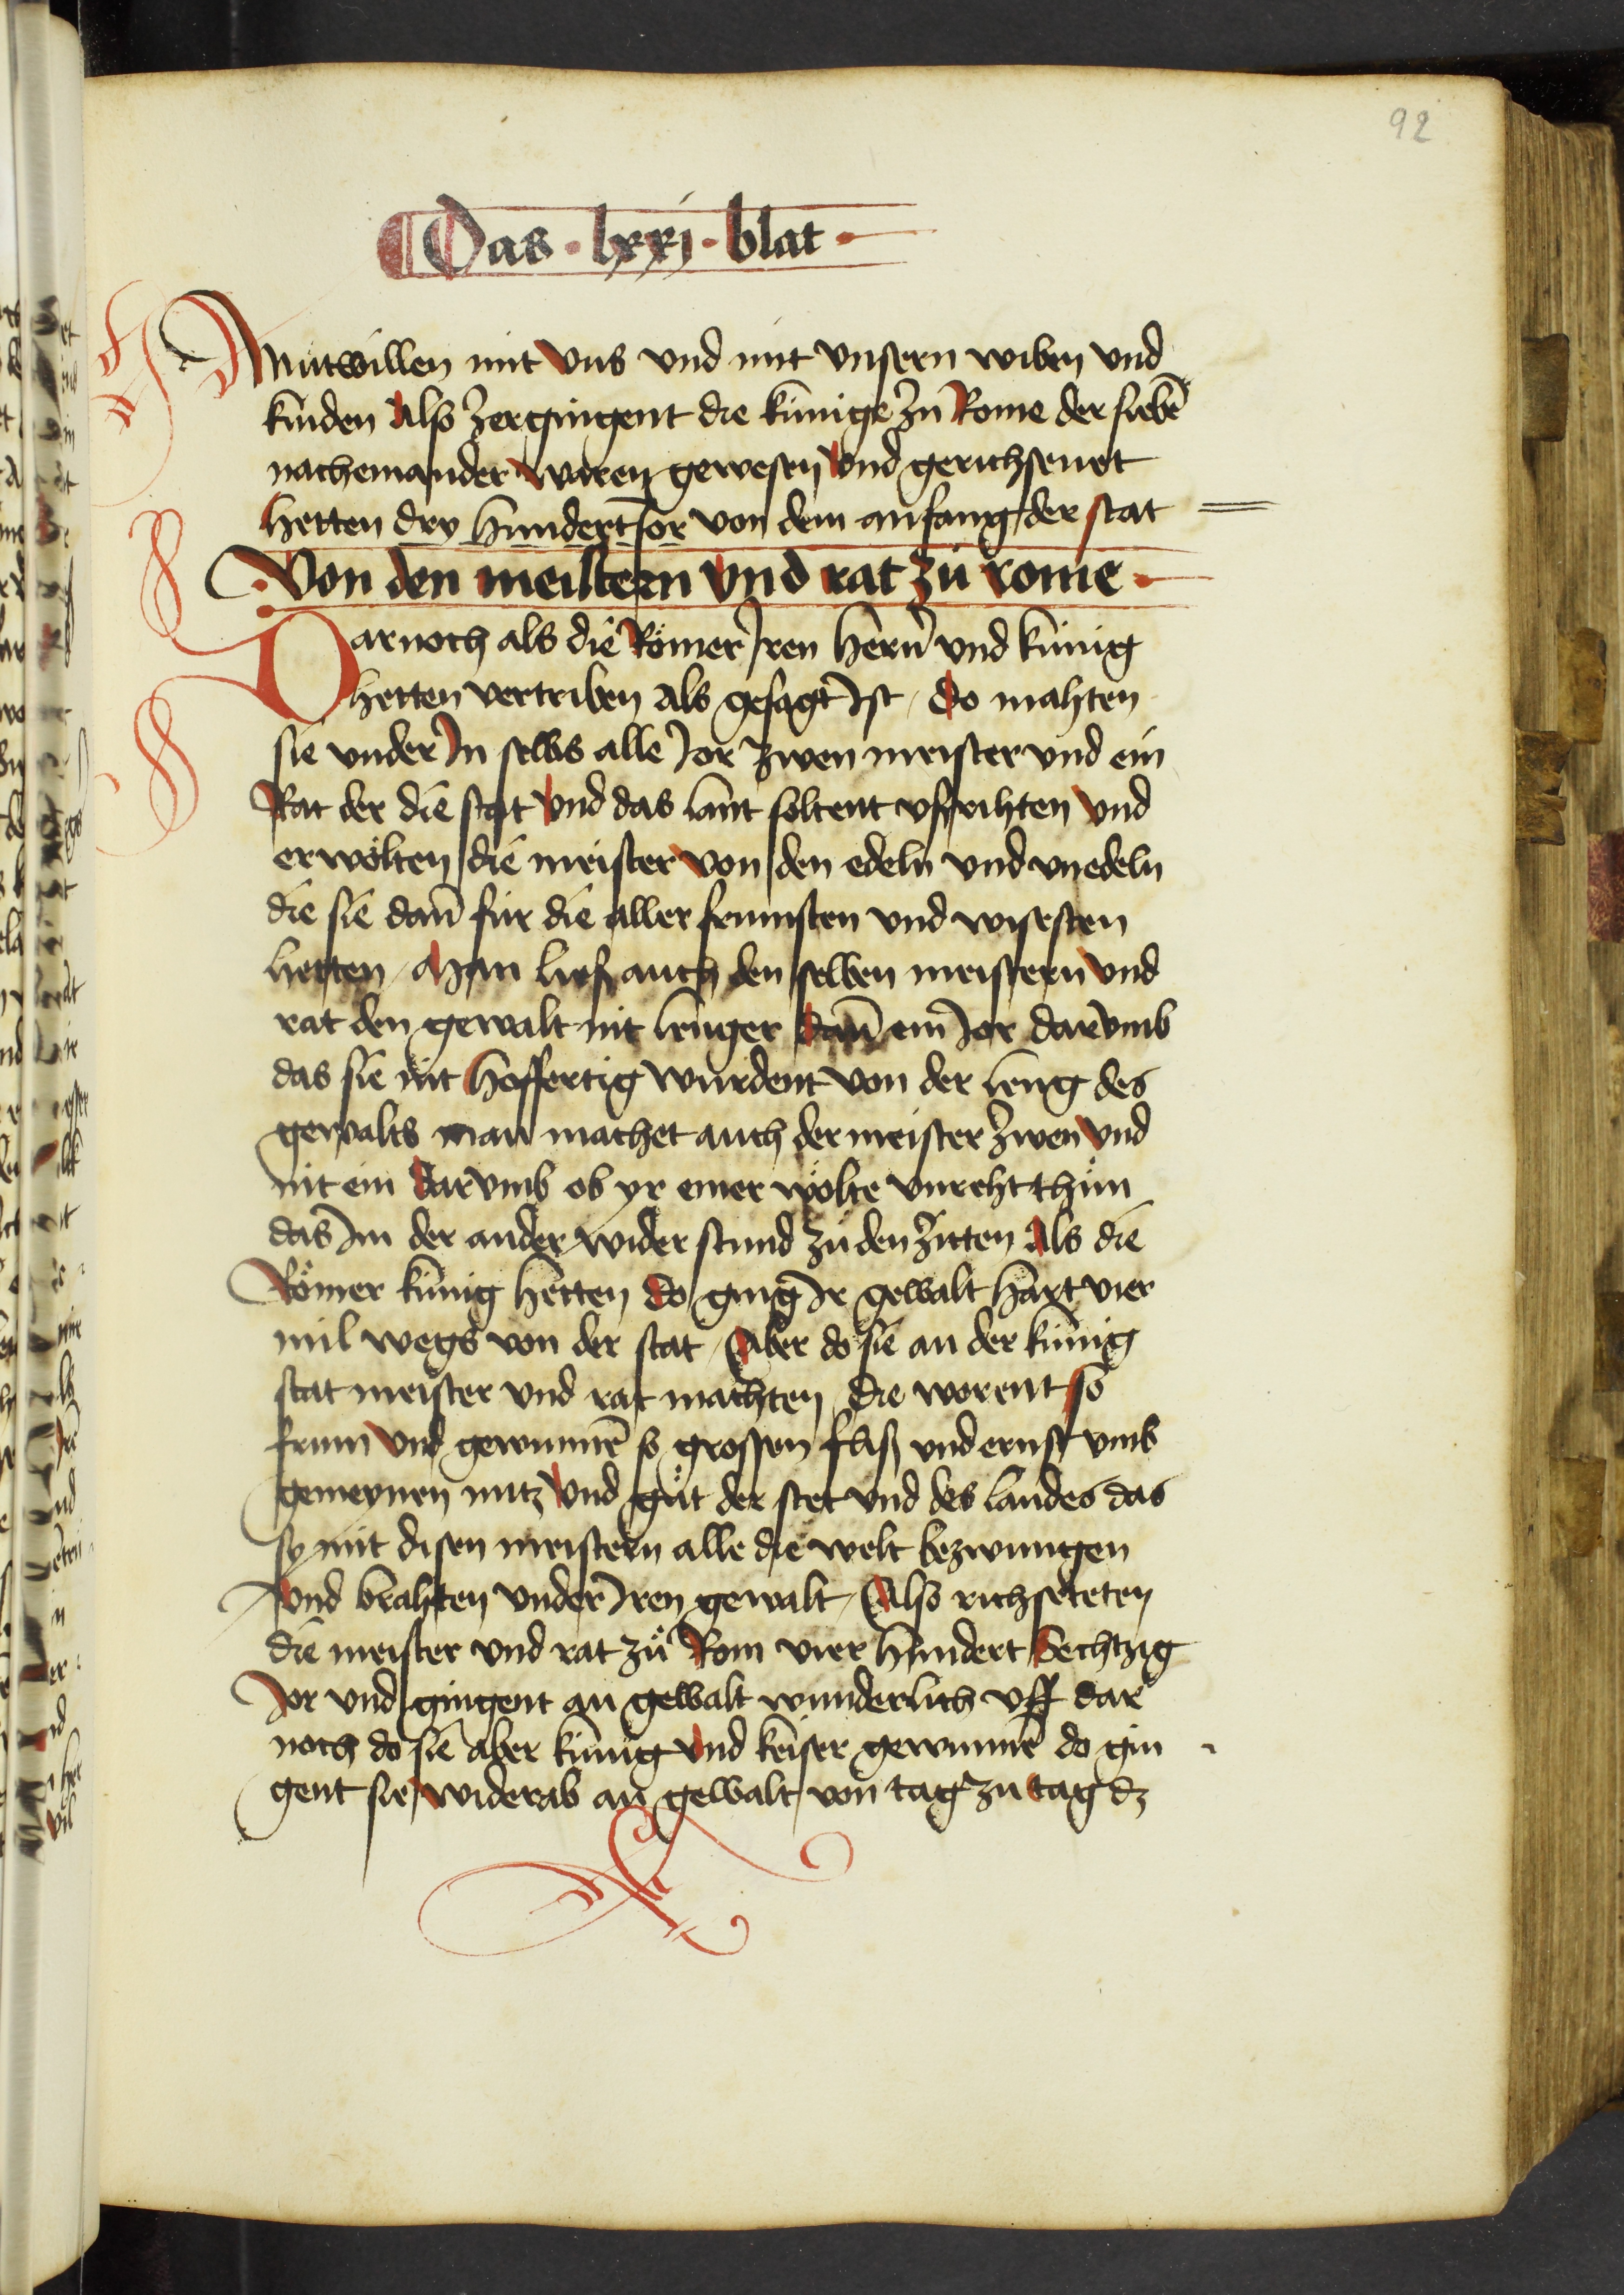 92
Das · lxxj · blat ·
Mutwillen mit vns vnd mit vnsern wiben vnd
kinden Also zergingent die künige zu Rome der siebē
nacheinander waren gewesen vnd gerichsenet
hetten dry hundert Jor von dem anfang der stat
Von den meistern vnd rat zů rome
Darnoch als die Römer Jren hern̄ vnd künig
hetten vertriben als gesagt Jst / do mahten
sie vnder Jn selbs alle Jor zwen meister vnd ein
Rat der die stat vnd das lant soltent vßrihten vnd
erwölten die meister von den edeln vnd vnedeln
die sie dan̄ für die aller frumsten vnd wisesten
hetten / Man ließ auch den selben meistern vnd
rat den gewalt nit lenger dan̄ ein Jor darvmb
das sie nit hoffertig wurdent von der leng des
gewalts man machet auch der meister zwen vnd
nit ein darvmb ob yr einer wölte vnreht thůn
das Jm der ander wider stund zů den zitten Als die
Römer künig hetten do ging Jr gewalt hart vier
mil wegs von der stat / Aber do sie an der künig
stat meister vnd rat machten die worent so
frum vnd gewunnē so grossen fliß vnd ernst vmb
gemeynen nutz vnd gůt der stet vnd des landes das
sy mit disen meistern alle die welt bezwungen
vnd brahten vnder Jren gewalt / Also richseteten
die meister vnd rat zů Rom vier hundert Sechtzig
Jor vnd gingent an gewalt wunderlich vff dar
noch do sie aber künig vnd keiser gewunnē do gin
gent sie wider ab an gewalt von tag zu tag dz